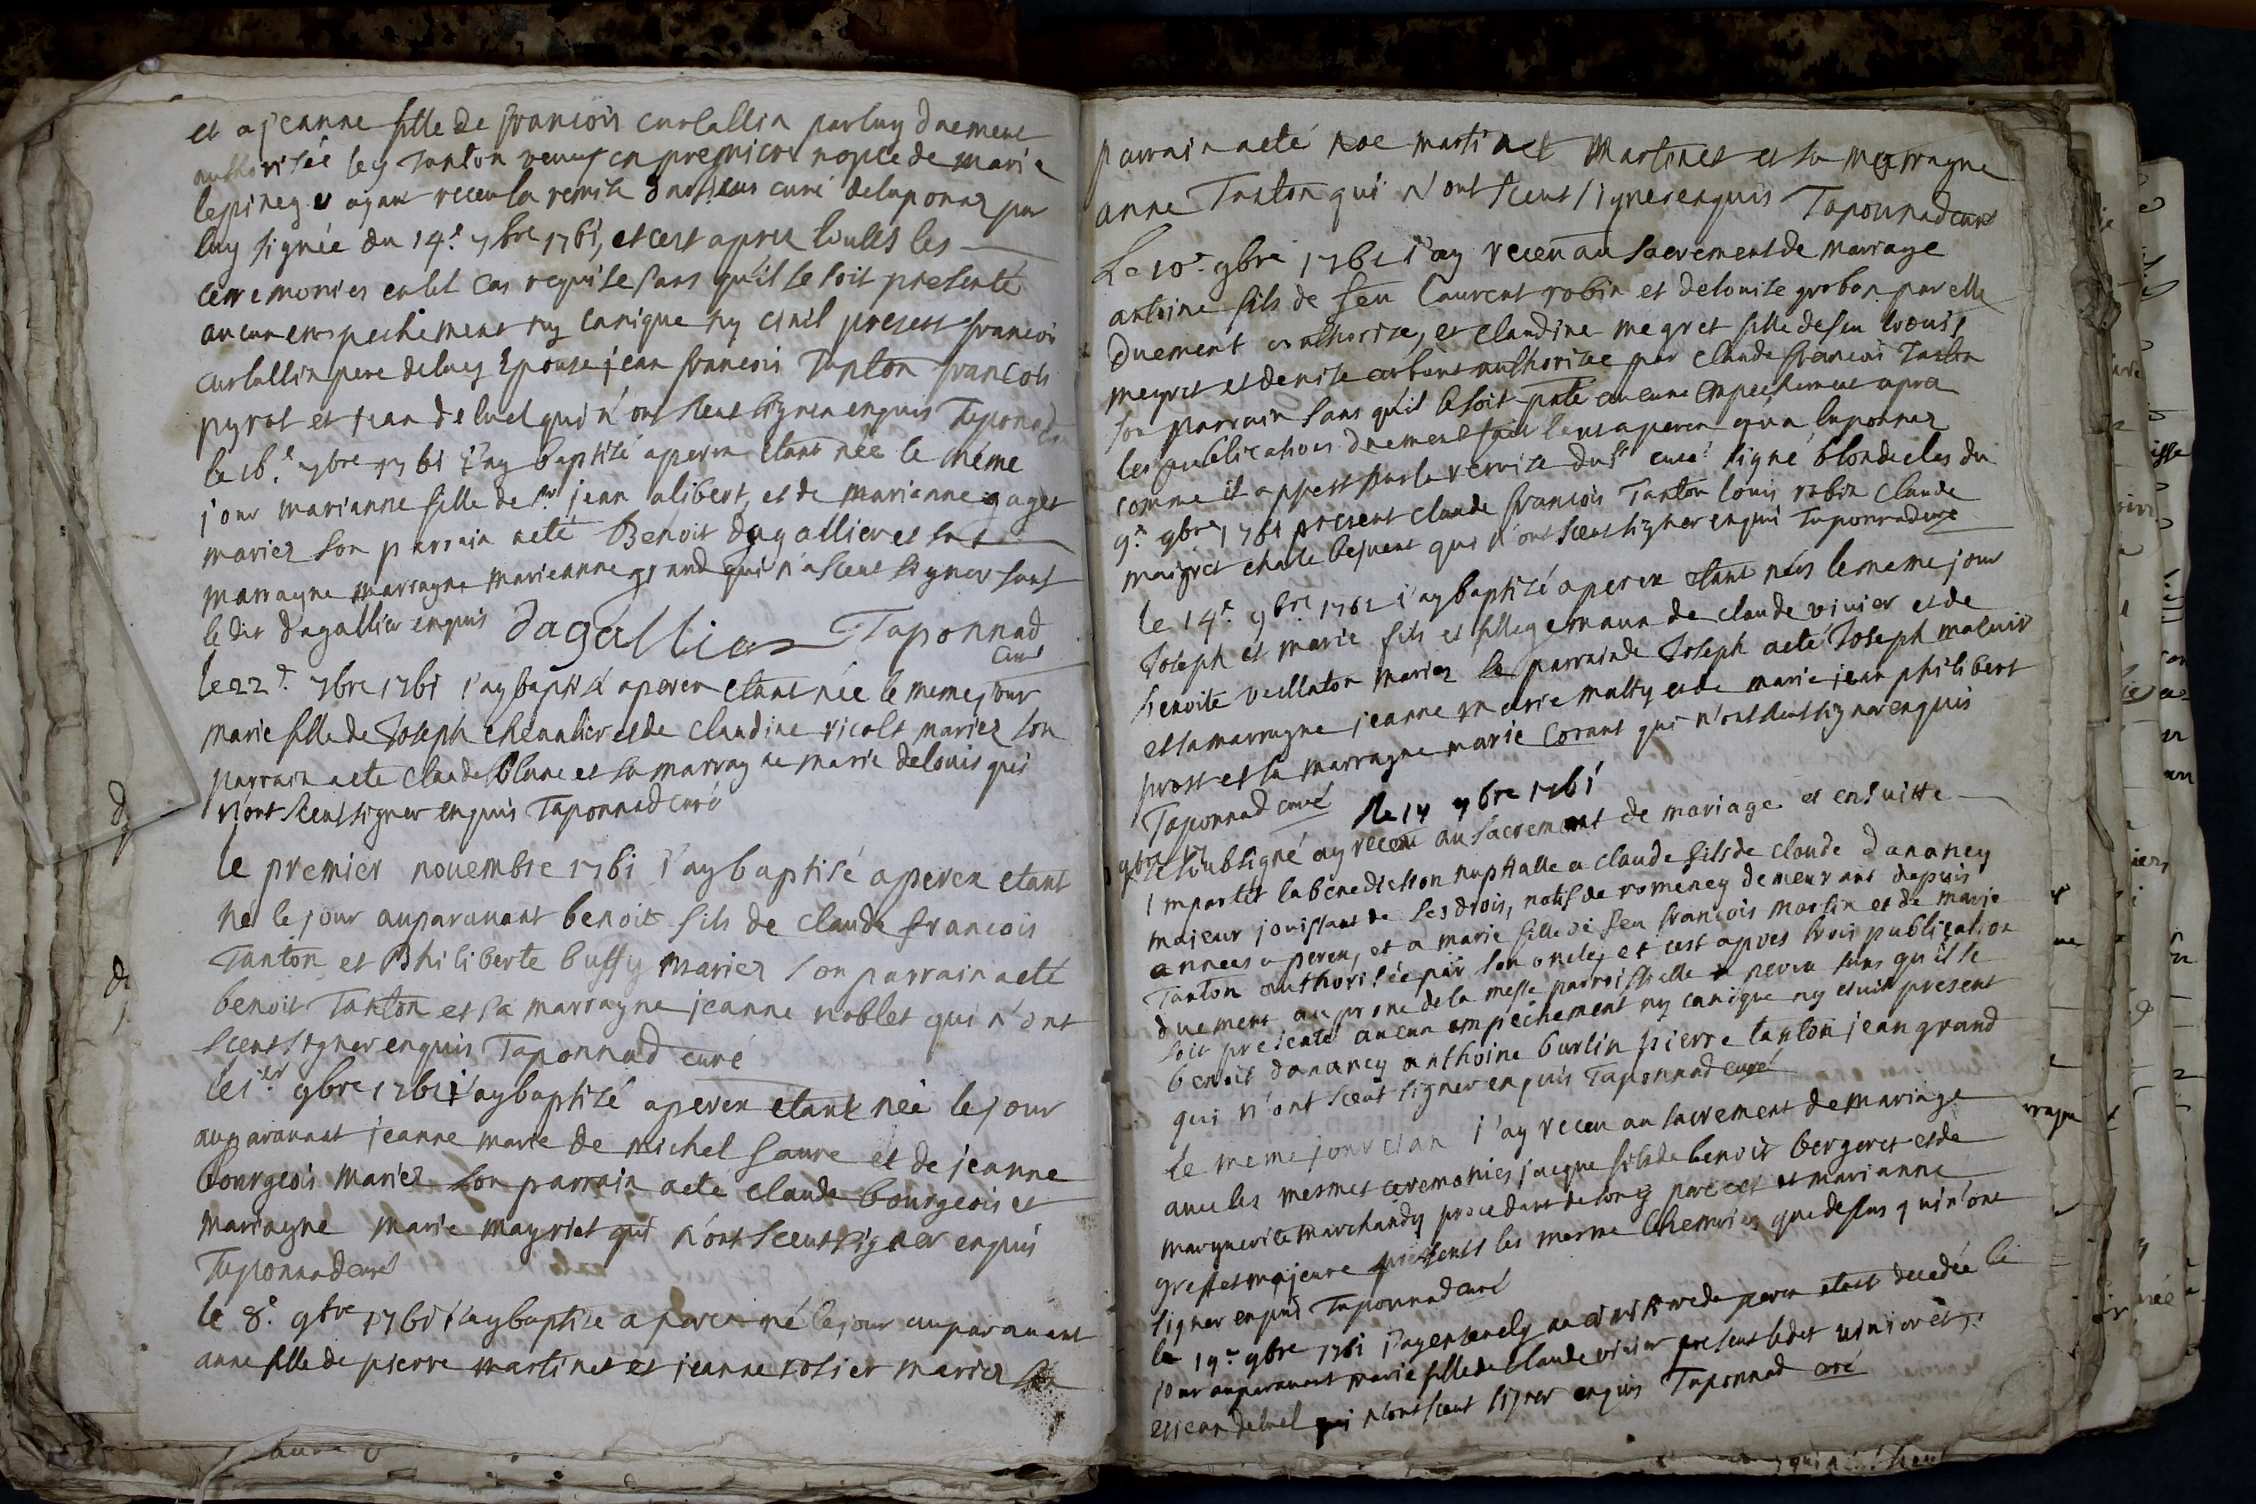 et a jeanne fille de francois curtallin par luy duement
authorisée ley Tanton veuf en premiere nopce de marie
lepiney ayant receu la remise du sieur curé de laponas par
luy signée du 14.e 7bre 1761, et cest apres touttes les
ceremonies en tel cas requise sans qu'il se soit presenté
aucun empechement ny canique ny civil present francois
curtallin pere de lacy Epouse jean francois Tanton francois
pyrot et jean deluel qui n'ont sceut signer enquis Taponad
le 16.e 7bre 1761 j'ay baptisé a peren etant née le méme
jour marianne fille de Sr. jean alibert, et de marianne gaget
mariez son parrain aeté Benoit dagallier et sa
marrayne marrayne marieanne grand qui n'a sceut signer sauf
le dit dagallier enquis dagallier Taponnad
curé
le 22.e 7bre 1761 j'ay baptisé a peren etant née le meme jour
marie fille de Joseph chevalier et de claudine nicolt mariez son
parrain aeté claude blanc et sa marrayne marie delouis qui
n'ont sceut signer enquis Taponnad curé
le premier novembre 1761 j'ay baptisé a peren etant
né le jour auparavant benoit fils de claude francois
Tanton et Philiberte buffy mariez son parrain aeté
benoit Tanton et sa marrayne jeanne noblet qui n'ont
sceut signer enquis Taponnad curé
le 1.er 9bre 1761 j'ay baptisé a peren etant née le jour
auparavant jeanne marie de michel faure et de jeanne
bourgeois mariez son parrain aeté claude bourgeois et
marrayne marie mayriet qui n'ont sceut signer enquis
Taponnad curé
le 8.e 9bre 1761 j'ay baptisé a peren né le jour auparavant
anne fille de pierre martinet et jeanne rosier mariez son
parrain aeté noe martinet martinet et sa marrayne
anne Tanton qui n'ont sceut signer enquis Taponnad curé
Le 10.e 9bre 1761 j'ay receu au sacrement de mariage
antoine fils de feu laurent robin et de louise grobon par elle
duement authorisé, et claudine megret fille de feu louis
meyret et denise carbent authorisée par claude francois Tanton
son parrain sans qu'il se soit pnté aucune empechement apra
les publications duement fait tant a peren qu'a laponnez
comme il appert par la remise du Sr. curé signé blondeles du
9.e 9bre 1761 present claude francois Tanton louis robin claude
maigret charle bejuent qui n'ont sceut signer enquis Taponnad curé
le 14.e 9bre 1761 j'ay baptisé a peren etant nés le meme jour
Joseph et marie fils et fille gemaux de claude vivier et de
benoite veillaton mariez le parrain de Joseph aeté Joseph maluir
et sa marrayne jeanne marie malty et de marie jean philibert
prost et sa marrayne marie corant qui n'ont sceut signer enquis
Taponnad curé le 17 9bre 1761
je soubsigné ay receu au sacrement de mariage et ensuitte
impartit la bénédiction nuptialle a claude fils de claude dananey
majeur jouissant de ses drois, natif de romeney demeurant depuis
annees a peren, et a marie fille de feu francois martin et de marie
Tanton authorisée par son oncle, et cest apres trois publication
duement au prone de la messe parroissialle a peren sans qu'il se
soit presenté aucun empéchement ny canique ny civil present
benoit dananey anthoine burlin pierre tanton jean grand
qui n'ont sceut signer enquis Taponnad curé
le meme jour et an j'ay receu au sacrement de mariage
avec les mesmes ceremonies jacque fils de benoit bergeret et de
marguerite marchandy procedant de son pere et marianne
greffet majeure presents les mesme themoins que dessus qui n'ont
signer enquis Taponnad curé
le 19.e 9bre 1761 j'ay ensevely au cimistiere de peren etant decedée le
jour auparavant marie fille de claude vivier present ledit vivier et
et jean deluel qui n'ont sceut signer enquis Taponnad curé